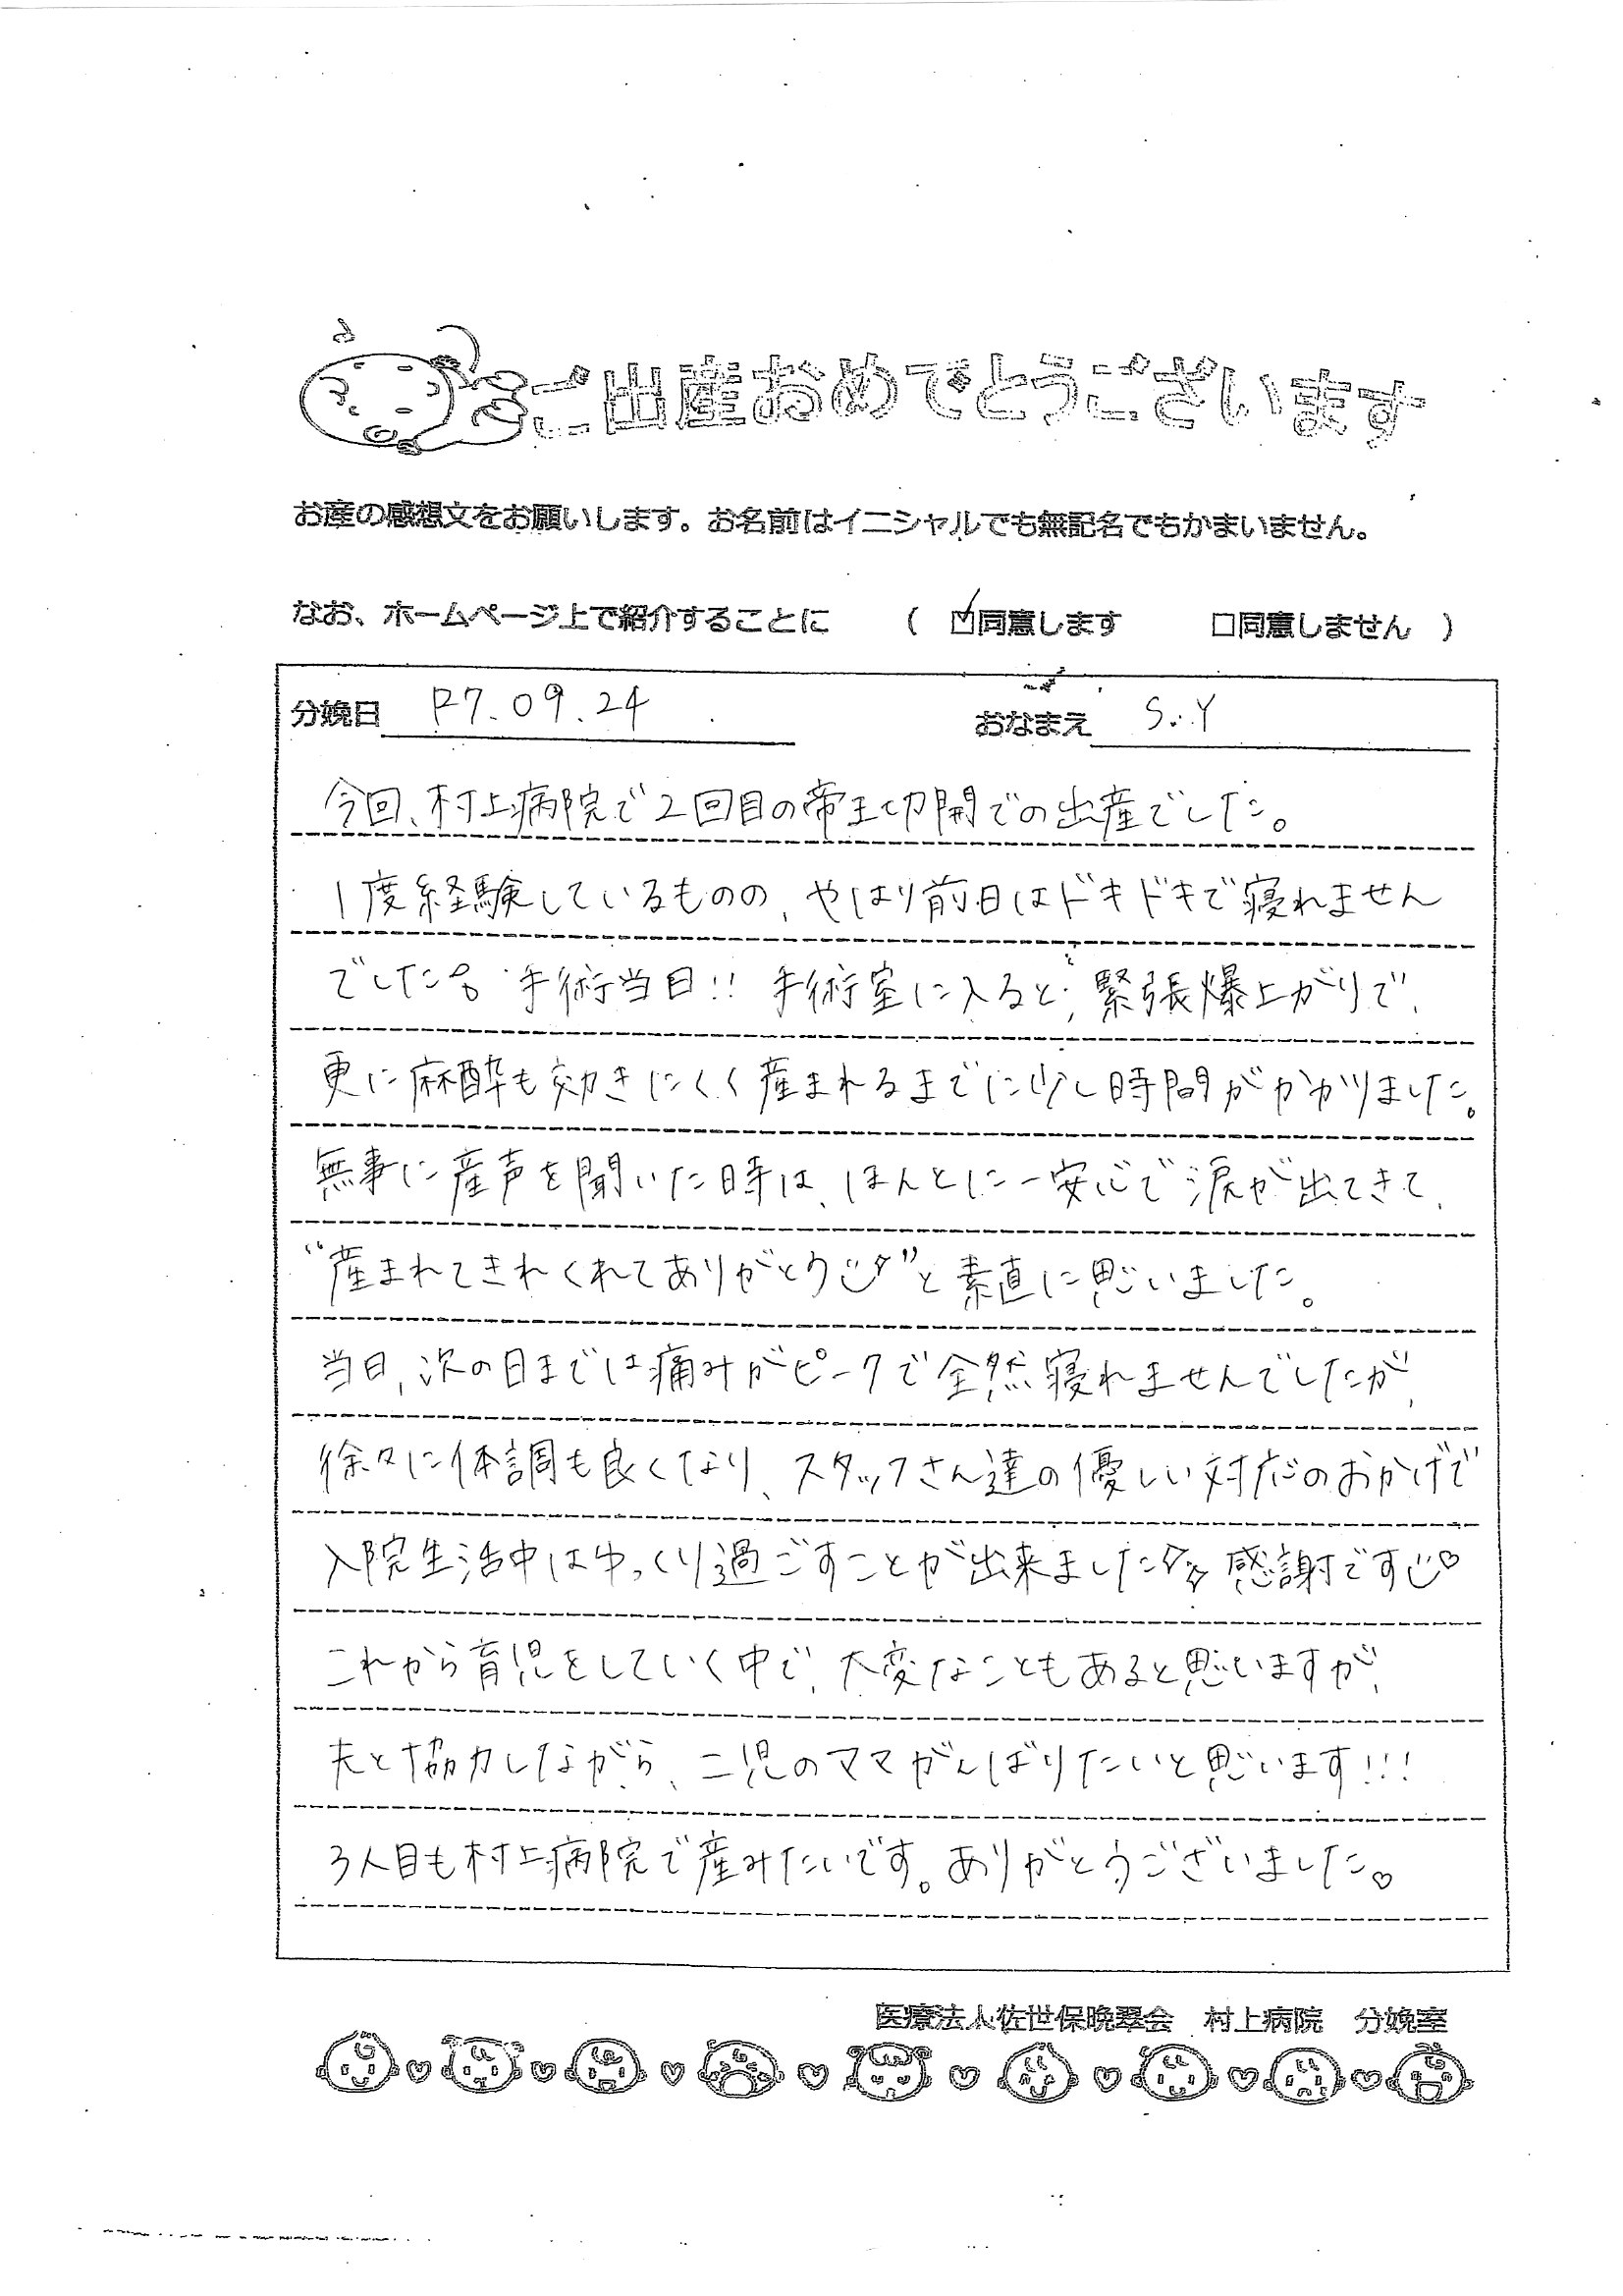 ご出産おめでとうございます
お産の感想文をお願いします。お名前はイニシャルでも無記名でもかまいません。
なお、ホームページ上で紹介することに （ ☑同意します □同意しません ）
分娩日 R7.09.24 おなまえ S.Y
今回、村上病院で2回目の帝王切開での出産でした。
1度経験しているものの、やはり前日はドキドキで寝れません
でした。手術当日!! 手術室に入ると、緊張爆上がりで、
更に麻酔も効きにくく産まれるまでに少し時間がかかりました。
無事に産声を聞いた時は、ほんとに一安心で涙が出てきて、
“産まれてきれくれてありがとう”と素直に思いました。
当日、次の日までは痛みがピークで全然寝れませんでしたが、
徐々に体調も良くなり、スタッフさん達の優しい対応のおかげで
入院生活中はゆっくり過ごすことが出来ました 感謝です♡
これから育児をしていく中で、大変なこともあると思いますが、
夫と協力しながら、二児のママがんばりたいと思います!!!
3人目も村上病院で産みたいです。ありがとうございました♡
医療法人佐世保晩翠会 村上病院 分娩室